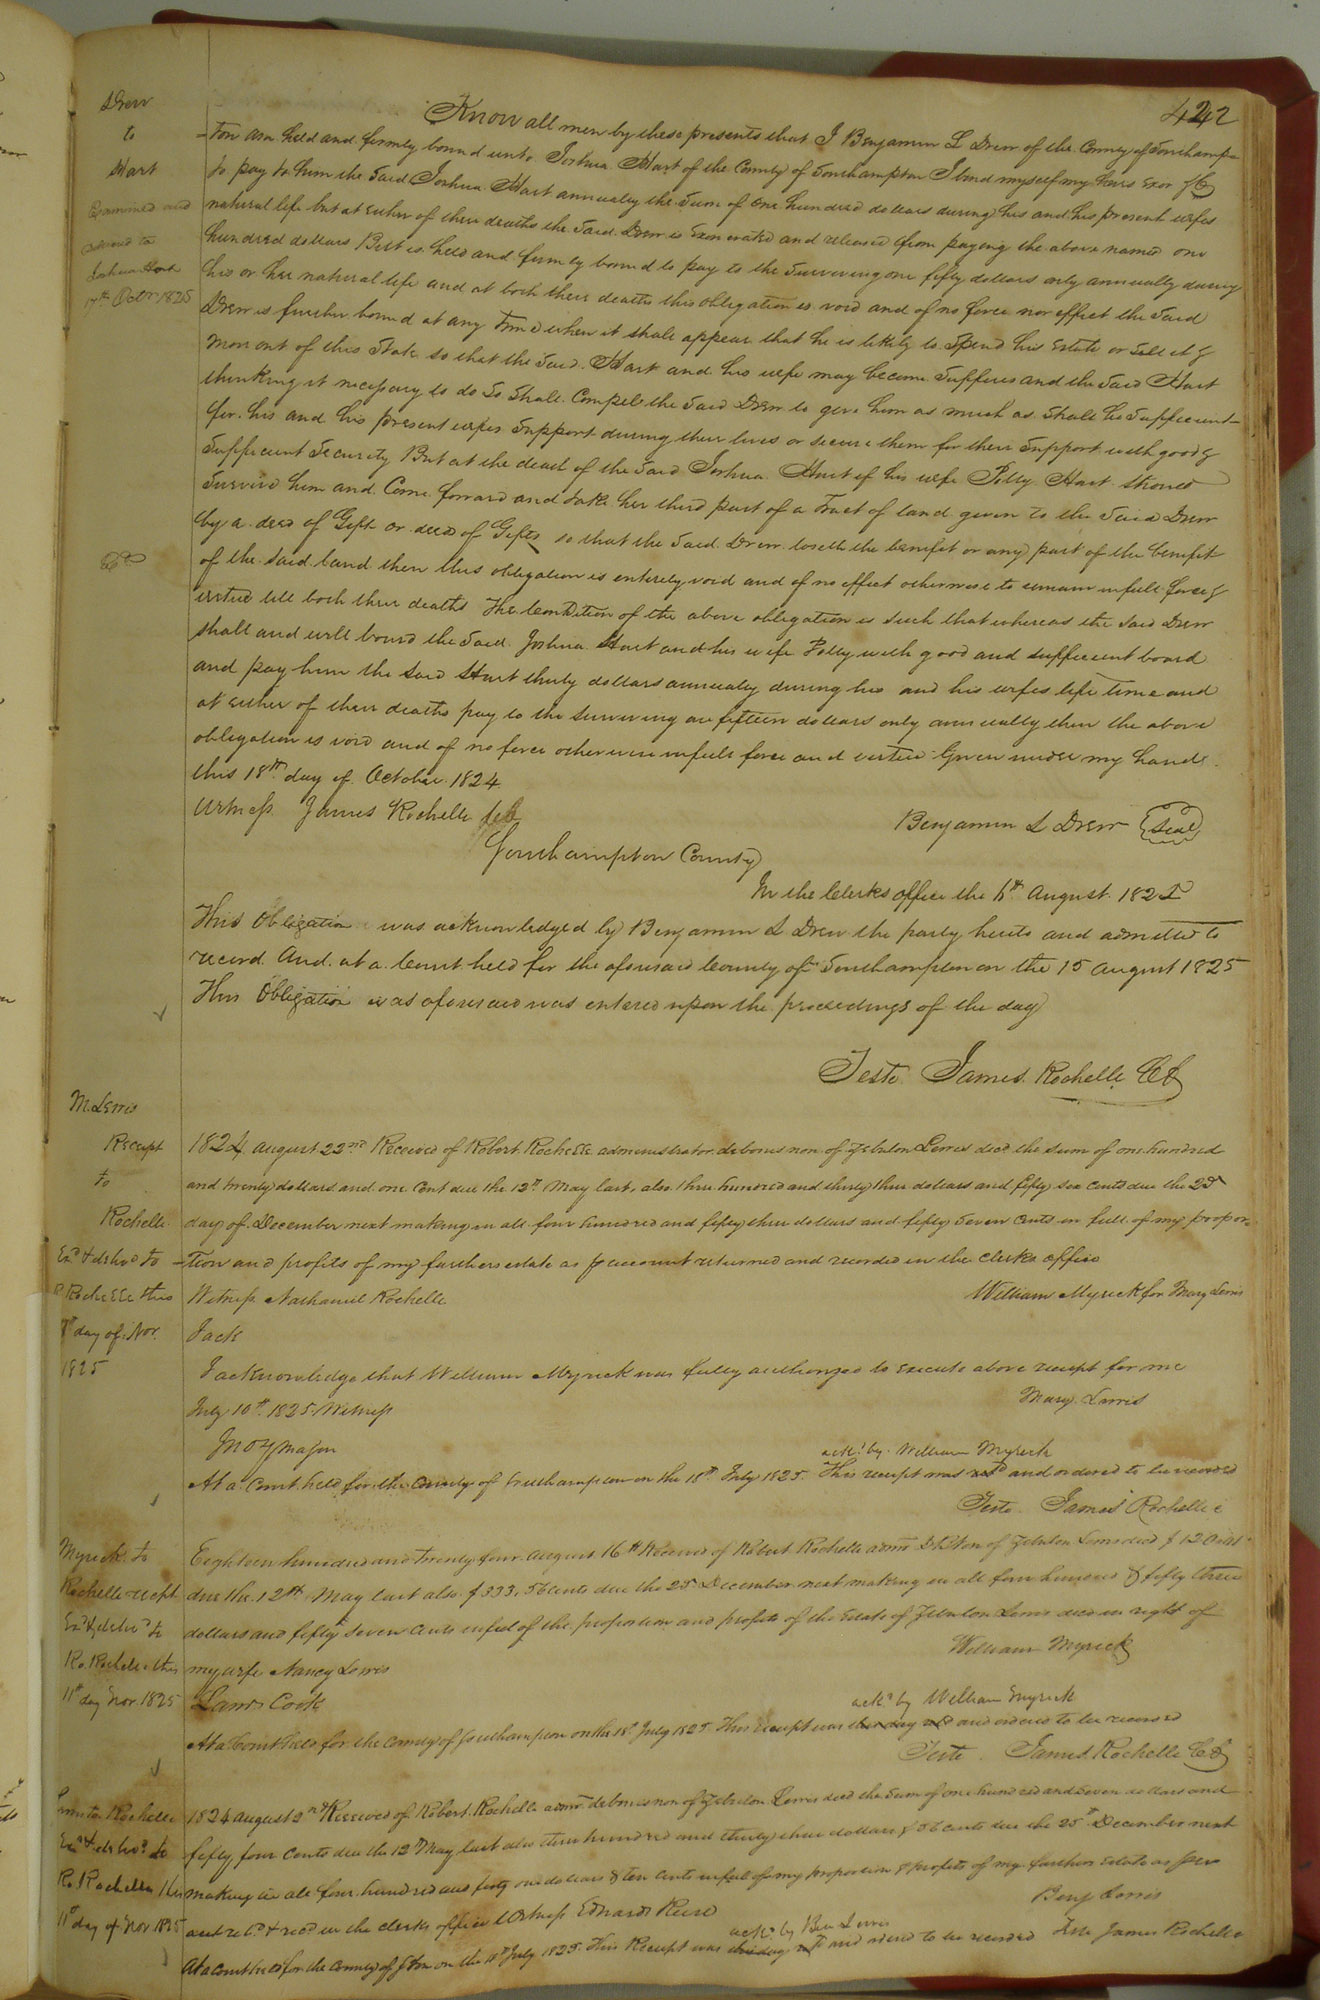 422
Drew
to
Hart
Examined and
delivered to
Joshua Hart
17th Octr 1825
Know all men by these presents that I Benjamin L Drew of the County of Southamp
-ton am held and firmly bound unto Joshua Hart of the County of Southampton I bind myself my heirs Exor &C
to pay to him the Said Joshua Hart annually the Sum of one hundred dollars during his and his present wifes
natural life but at Either of there deaths the Said Drew is Exonerated and released from paying the above named one
hundred dollars But is held and firmly bound to pay to the Surviving one fifty dollars only annually during
his or her natural life and at both their deaths this obligation is void and of no force nor effect the Said
Drew is further bound at any time when it shall appear that he is likely to Spend his Estate or Sell it &
Move out of this State so that the Said Hart and his wife may become Sufferers and the Said Hart
thinking it necessary to do So Shall Compel the Said Drew to give him as much as Shall be Sufficient
for his and his present wifes Support during their lives or secure them for their Support with good &
Sufficient Security But at the death of the Said Joshua Hart if his wife Polly Hart Should
Survive him and Come forward and take her third part of a Tract of land given to the Said Drew
by a deed of Gift or deed of Gifts so that the Said Drew loseth the benefit or any part of the benefit
of the Said land then this obligation is entirely void and of no effect otherwise to remain in full force &
virtue till both their deaths The Condition of the above obligation is Such that whereas the Said Drew
shall and will board the Said Joshua Hart and his wife Polly with good and sufficient board
and pay him the Said Hart thirty dollars annually during his and his wifes life time and
at either of their deaths pay to the surviving one fifteen dollars only annually then the above
obligation is void and of no force otherwise in full force and virtue Given under my hand
this 18th day of October 1824
Witness James Rochelle
Benjamin L Drew Seal
Southampton County
In the Clerks office the 6th August 1825
This Obligation was acknowledged by Benjamin L Drew the party hereto and admitted to
record And at a Court held for the aforesaid County of Southampton on the 15 August 1825
This Obligation as aforesaid was entered upon the proceedings of the day
Teste James Rochelle CC
M. Lewis
Receipt
to
Rochelle
Exd & delivd to
R Rochelle this
day of Nov.
1825
1824 August 22nd Received of Robert Rochelle administrator debonis non of Zebulon Lewis decd the sum of one hundred
and twenty dollars and one Cent due the 12th May last, also three hundred and thirty three dollars and fifty six cents due the 25
day of December next making in all four hundred and fifty three dollars and fifty Seven Cents in full of my propor-
-tion and profits of my fathers estate as pr account returned and recorded in the clerks office
Witness Nathaniel Rochelle
William Myrick for Mary Lewis
I ack
I acknowledge that William Myrick was fully authorized to execute above receipt for me
Mary Lewis
July 10th 1825 Witness
Jno Y Mason
ackd by William Myrick
At a Court held for the County of Southampton on the 18th July 1825 This receipt was and ordered to be recorded
Teste James Rochelle
Myrick to
Rochelle recpt
Exd & delivd to
Ro. Rochelle this
11th day Nov. 1825
Eighteen hundred and twenty four August 16th Received of Robert Rochelle admr of Zebulon Lewis decd $120
due the 12th May last also $333.56 Cents due the 25 December next making in all four hundred & fifty three
dollars and fifty seven Cents in full of the proportion and profits of the Estate of Zebulon Lewis decd in right of
William Myrick
my wife Nancy Lewis
Laws Cook
ackd by William Myrick
At a Court held for the County of Southampton on the 18 July 1825 This receipt was this day and ordered to be recorded
Teste James Rochelle CC
Lewis to Rochelle
Exd & delivd to
Ro. Rochelle this
11th day of Nov 1825
1824 August 2nd Received of Robert Rochelle admr debonis non of Zebulon Lewis decd the Sum of one hundred and Seven dollars and
fifty four Cents due the 12 May last also three hundred and thirty three dollars & 56 Cents due the 25th December next
making in all four hundred and forty one dollars & ten Cents in full of my proportion & profits of my fathers Estate as per
Benj Lewis
acct retd & recd in the clerks office Witness Edward Reese
ackd by Ben Lewis
At a Court held for the County of on the 18 July 1825 This Receipt was this day and ordered to be recorded Teste James Rochelle